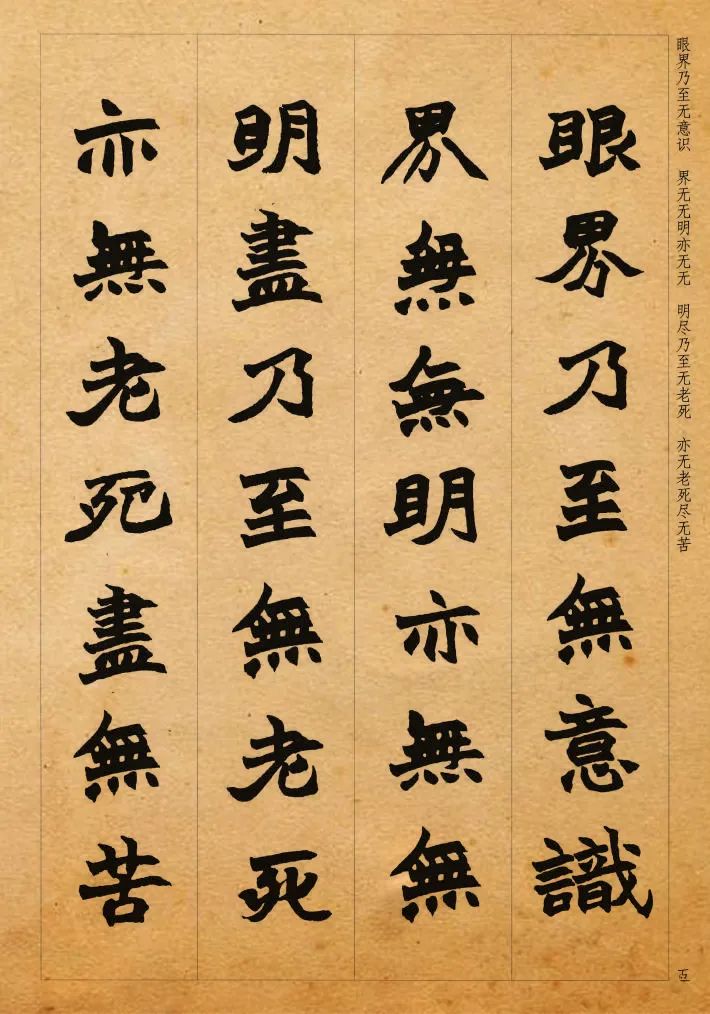 眼界乃至无意识 界无无明亦无无 明尽乃至无老死 亦无老死尽无苦
眼界乃至無意識
界無無明亦無無
明盡乃至無老死
亦無老死盡無苦